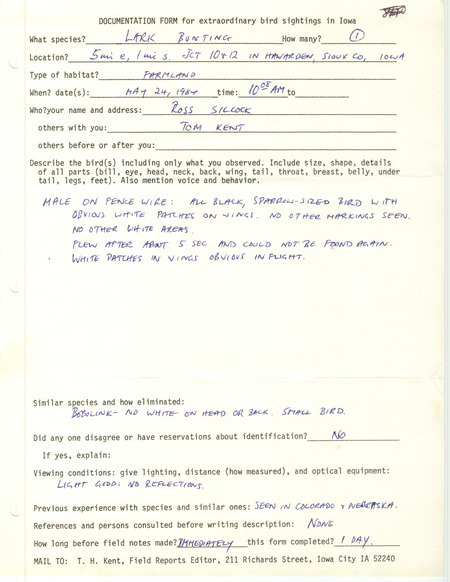 DOCUMENTATION FORM for extraordinary bird sightings in Iowa
What species? LARK BUNTING How many? 1
Location? 5 mi e, 1 mi s. JCT 10+12 IN HAWARDEN, SIOUX CO, IOWA
Type of habitat? FARMLAND
When? date(s): MAY 24, 1984 time: 10:08 AM to
Who?your name and address: ROSS SILCOCK
others with you: TOM KENT
others before or after you:
Describe the bird(s) including only what you observed. Include size, shape, details
of all parts (bill, eye, head, neck, back, wing, tail, throat, breast, belly, under
tail, legs, feet). Also mention voice and behavior.
MALE ON FENCE WIRE: ALL BLACK, SPARROW-SIZED BIRD WITH
OBVIOUS WHITE PATCHES ON WINGS. NO OTHER MARKINGS SEEN.
NO OTHER WHITE AREAS.
FLEW AFTER ABOUT 5 SEC AND COULD NOT BE FOUND AGAIN.
WHITE PATCHES IN WINGS OBVIOUS IN FLIGHT.
Similar species and how eliminated:
BOBOLINK- NO WHITE ON HEAD OR BACK. SMALL BIRD.
Did any one disagree or have reservations about identification? NO
If yes, explain:
Viewing conditions: give lighting, distance (how measured), and optical equipment:
LIGHT GOOD: NO REFLECTIONS.
Previous experience with species and similar ones: SEEN IN COLORADO + NEBRASKA.
References and persons consulted before writing description: NONE
How long before field notes made? IMMEDIATELY this form completed? 1 DAY.
MAIL TO: T. H. Kent, Field Reports Editor, 211 Richards Street, Iowa City IA 52240